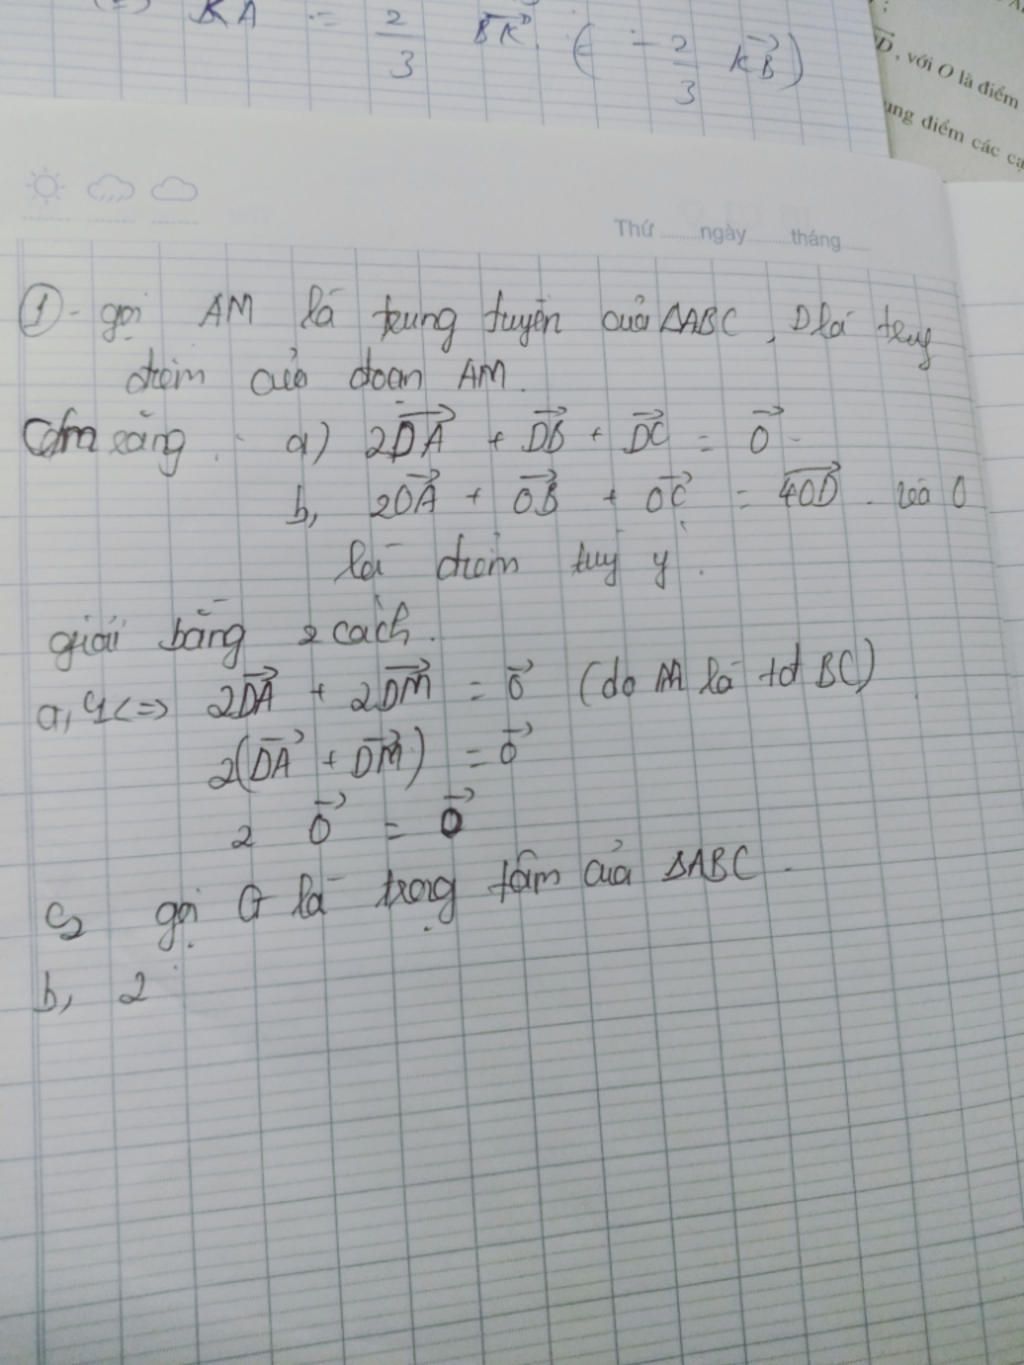 KA = 2/3 BK (= -2/3 KB)
D, với O là điểm
ung điểm các cạ
Thứ ngày tháng
① - gọi AM là trung tuyến của ΔABC, D là trung
điểm của đoạn AM.
Cm rằng: a) 2DA + DB + DC = 0
b, 2OA + OB + OC = 4OD. với O
là điểm tuỳ ý.
giải bằng 2 cách.
a, C1 <=> 2DA + 2DM = 0 (do M là tđ BC)
2(DA + DM) = 0
2 0 = 0
C2 gọi G là trọng tâm của ΔABC.
b, 2